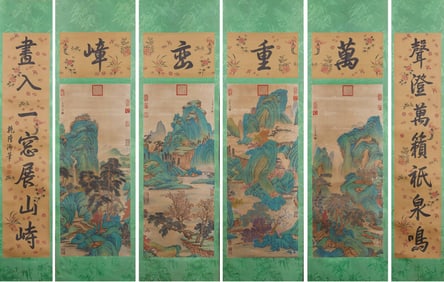 聲澄萬籟祇泉鳴
萬重峦嶂
畫入一窓展山峙
乾隆御筆